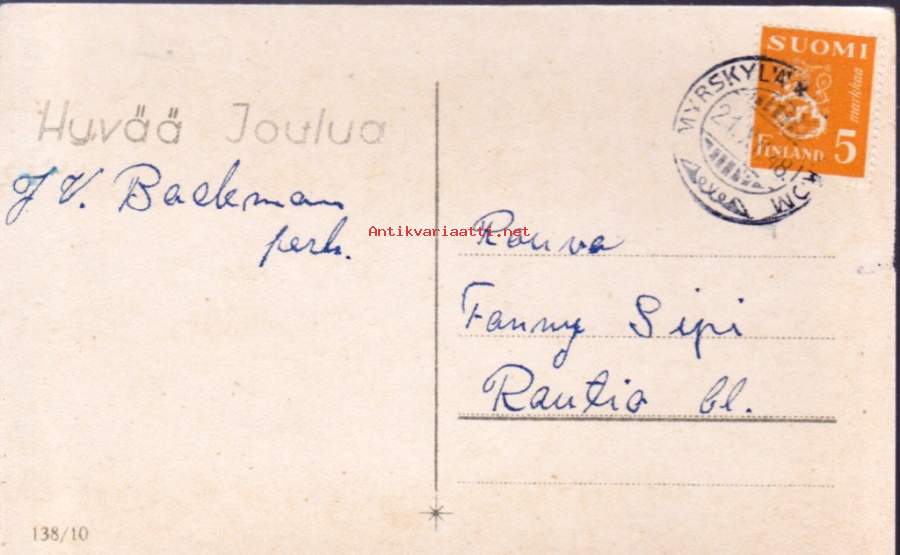 Hyvää Joulua
J V. Backman
perh.
138/10
SUOMI
markkaa
FINLAND 5
MYRSKYLÄ
Antikvariaatti.net
Rouva
Fanny Sipi
Rautio